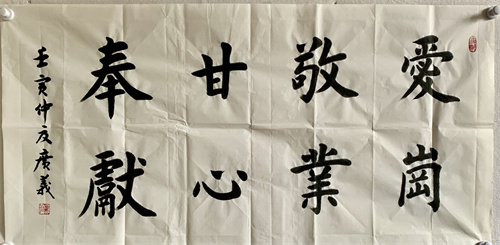 愛崗
敬業
甘心
奉獻
壬寅仲夏廣義